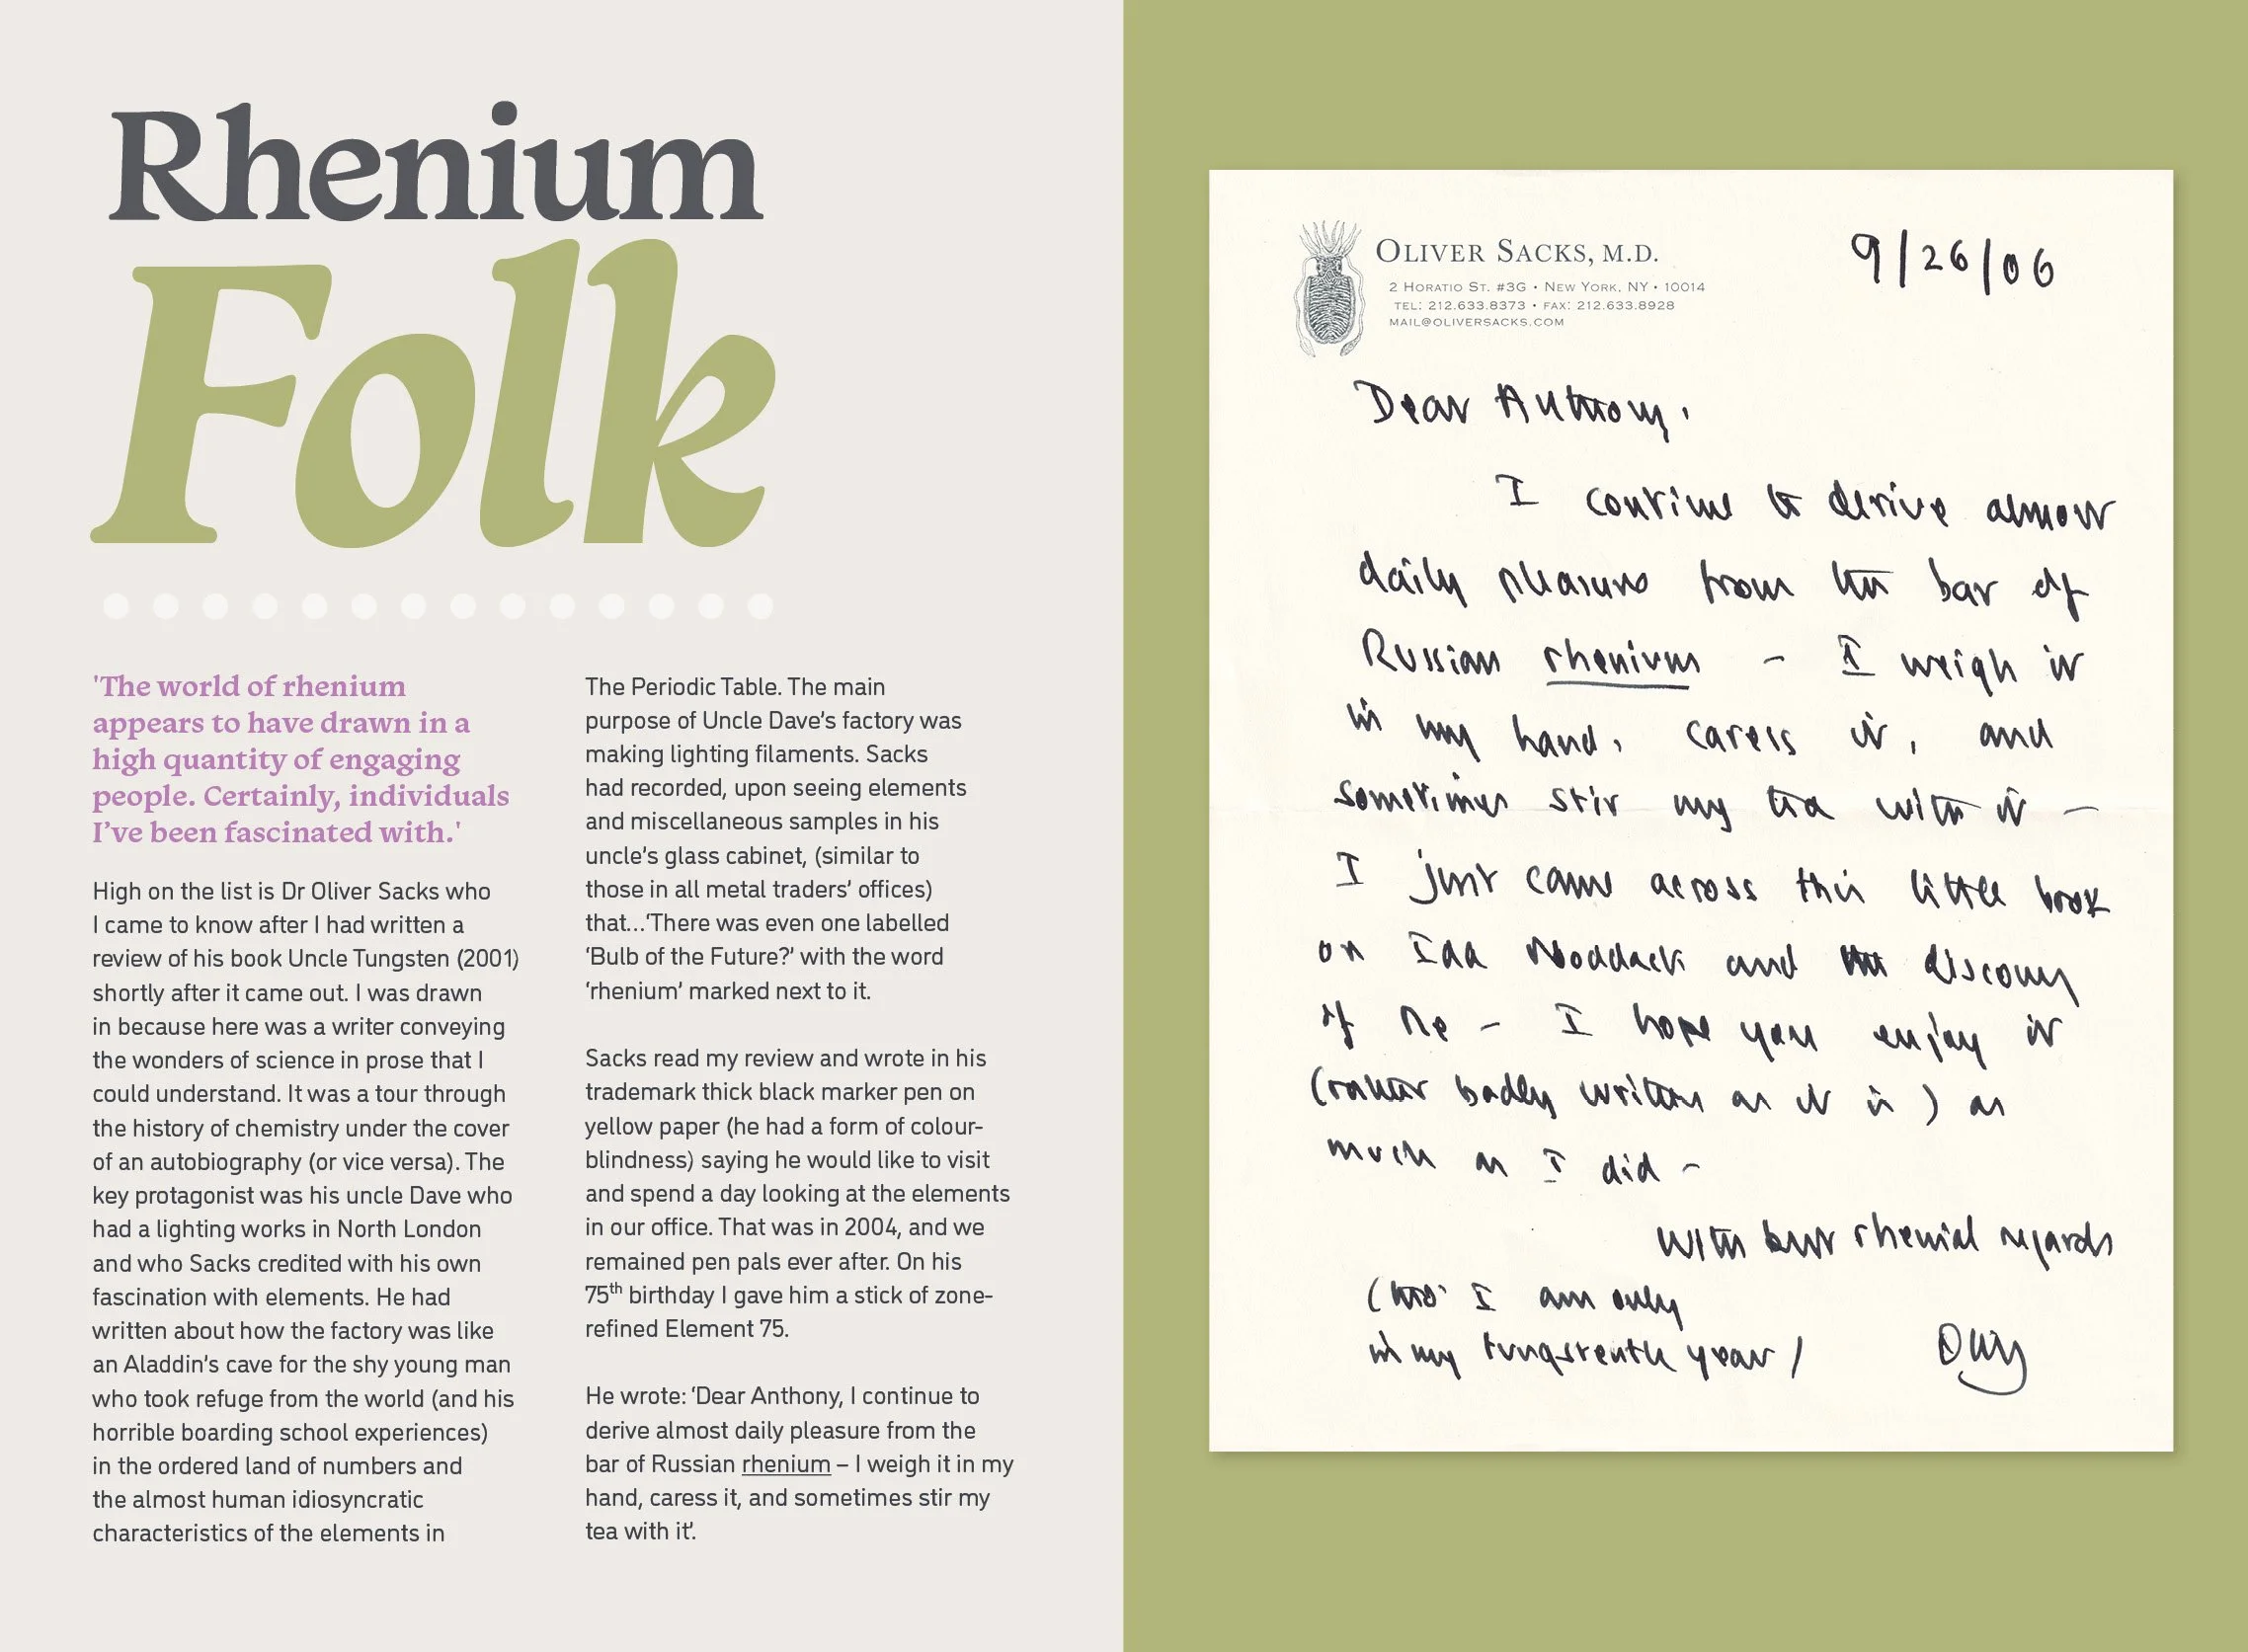 Rhenium
Folk
'The world of rhenium
appears to have drawn in a
high quantity of engaging
people. Certainly, individuals
I’ve been fascinated with.'
High on the list is Dr Oliver Sacks who
I came to know after I had written a
review of his book Uncle Tungsten (2001)
shortly after it came out. I was drawn
in because here was a writer conveying
the wonders of science in prose that I
could understand. It was a tour through
the history of chemistry under the cover
of an autobiography (or vice versa). The
key protagonist was his uncle Dave who
had a lighting works in North London
and who Sacks credited with his own
fascination with elements. He had
written about how the factory was like
an Aladdin’s cave for the shy young man
who took refuge from the world (and his
horrible boarding school experiences)
in the ordered land of numbers and
the almost human idiosyncratic
characteristics of the elements in
The Periodic Table. The main
purpose of Uncle Dave’s factory was
making lighting filaments. Sacks
had recorded, upon seeing elements
and miscellaneous samples in his
uncle’s glass cabinet, (similar to
those in all metal traders’ offices)
that…‘There was even one labelled
‘Bulb of the Future?’ with the word
‘rhenium’ marked next to it.
Sacks read my review and wrote in his
trademark thick black marker pen on
yellow paper (he had a form of colour-
blindness) saying he would like to visit
and spend a day looking at the elements
in our office. That was in 2004, and we
remained pen pals ever after. On his
75th birthday I gave him a stick of zone-
refined Element 75.
He wrote: ‘Dear Anthony, I continue to
derive almost daily pleasure from the
bar of Russian rhenium – I weigh it in my
hand, caress it, and sometimes stir my
tea with it’.
OLIVER SACKS, M.D.
2 HORATIO ST. #3G • NEW YORK, NY • 10014
TEL: 212.633.8373 • FAX: 212.633.8928
MAIL@OLIVERSACKS.COM
9/26/06
Dear Anthony,
I continue to derive almost
daily pleasure from the bar of
Russian rhenium – I weigh it
in my hand, caress it, and
sometimes stir my tea with it –
I just came across this little book
on Ida Noddack and the discovery
of Re – I hope you enjoy it
(rather badly written as it is) as
much as I did –
with best rhenial regards
(tho' I am only
in my tungstenth year)
Oliver